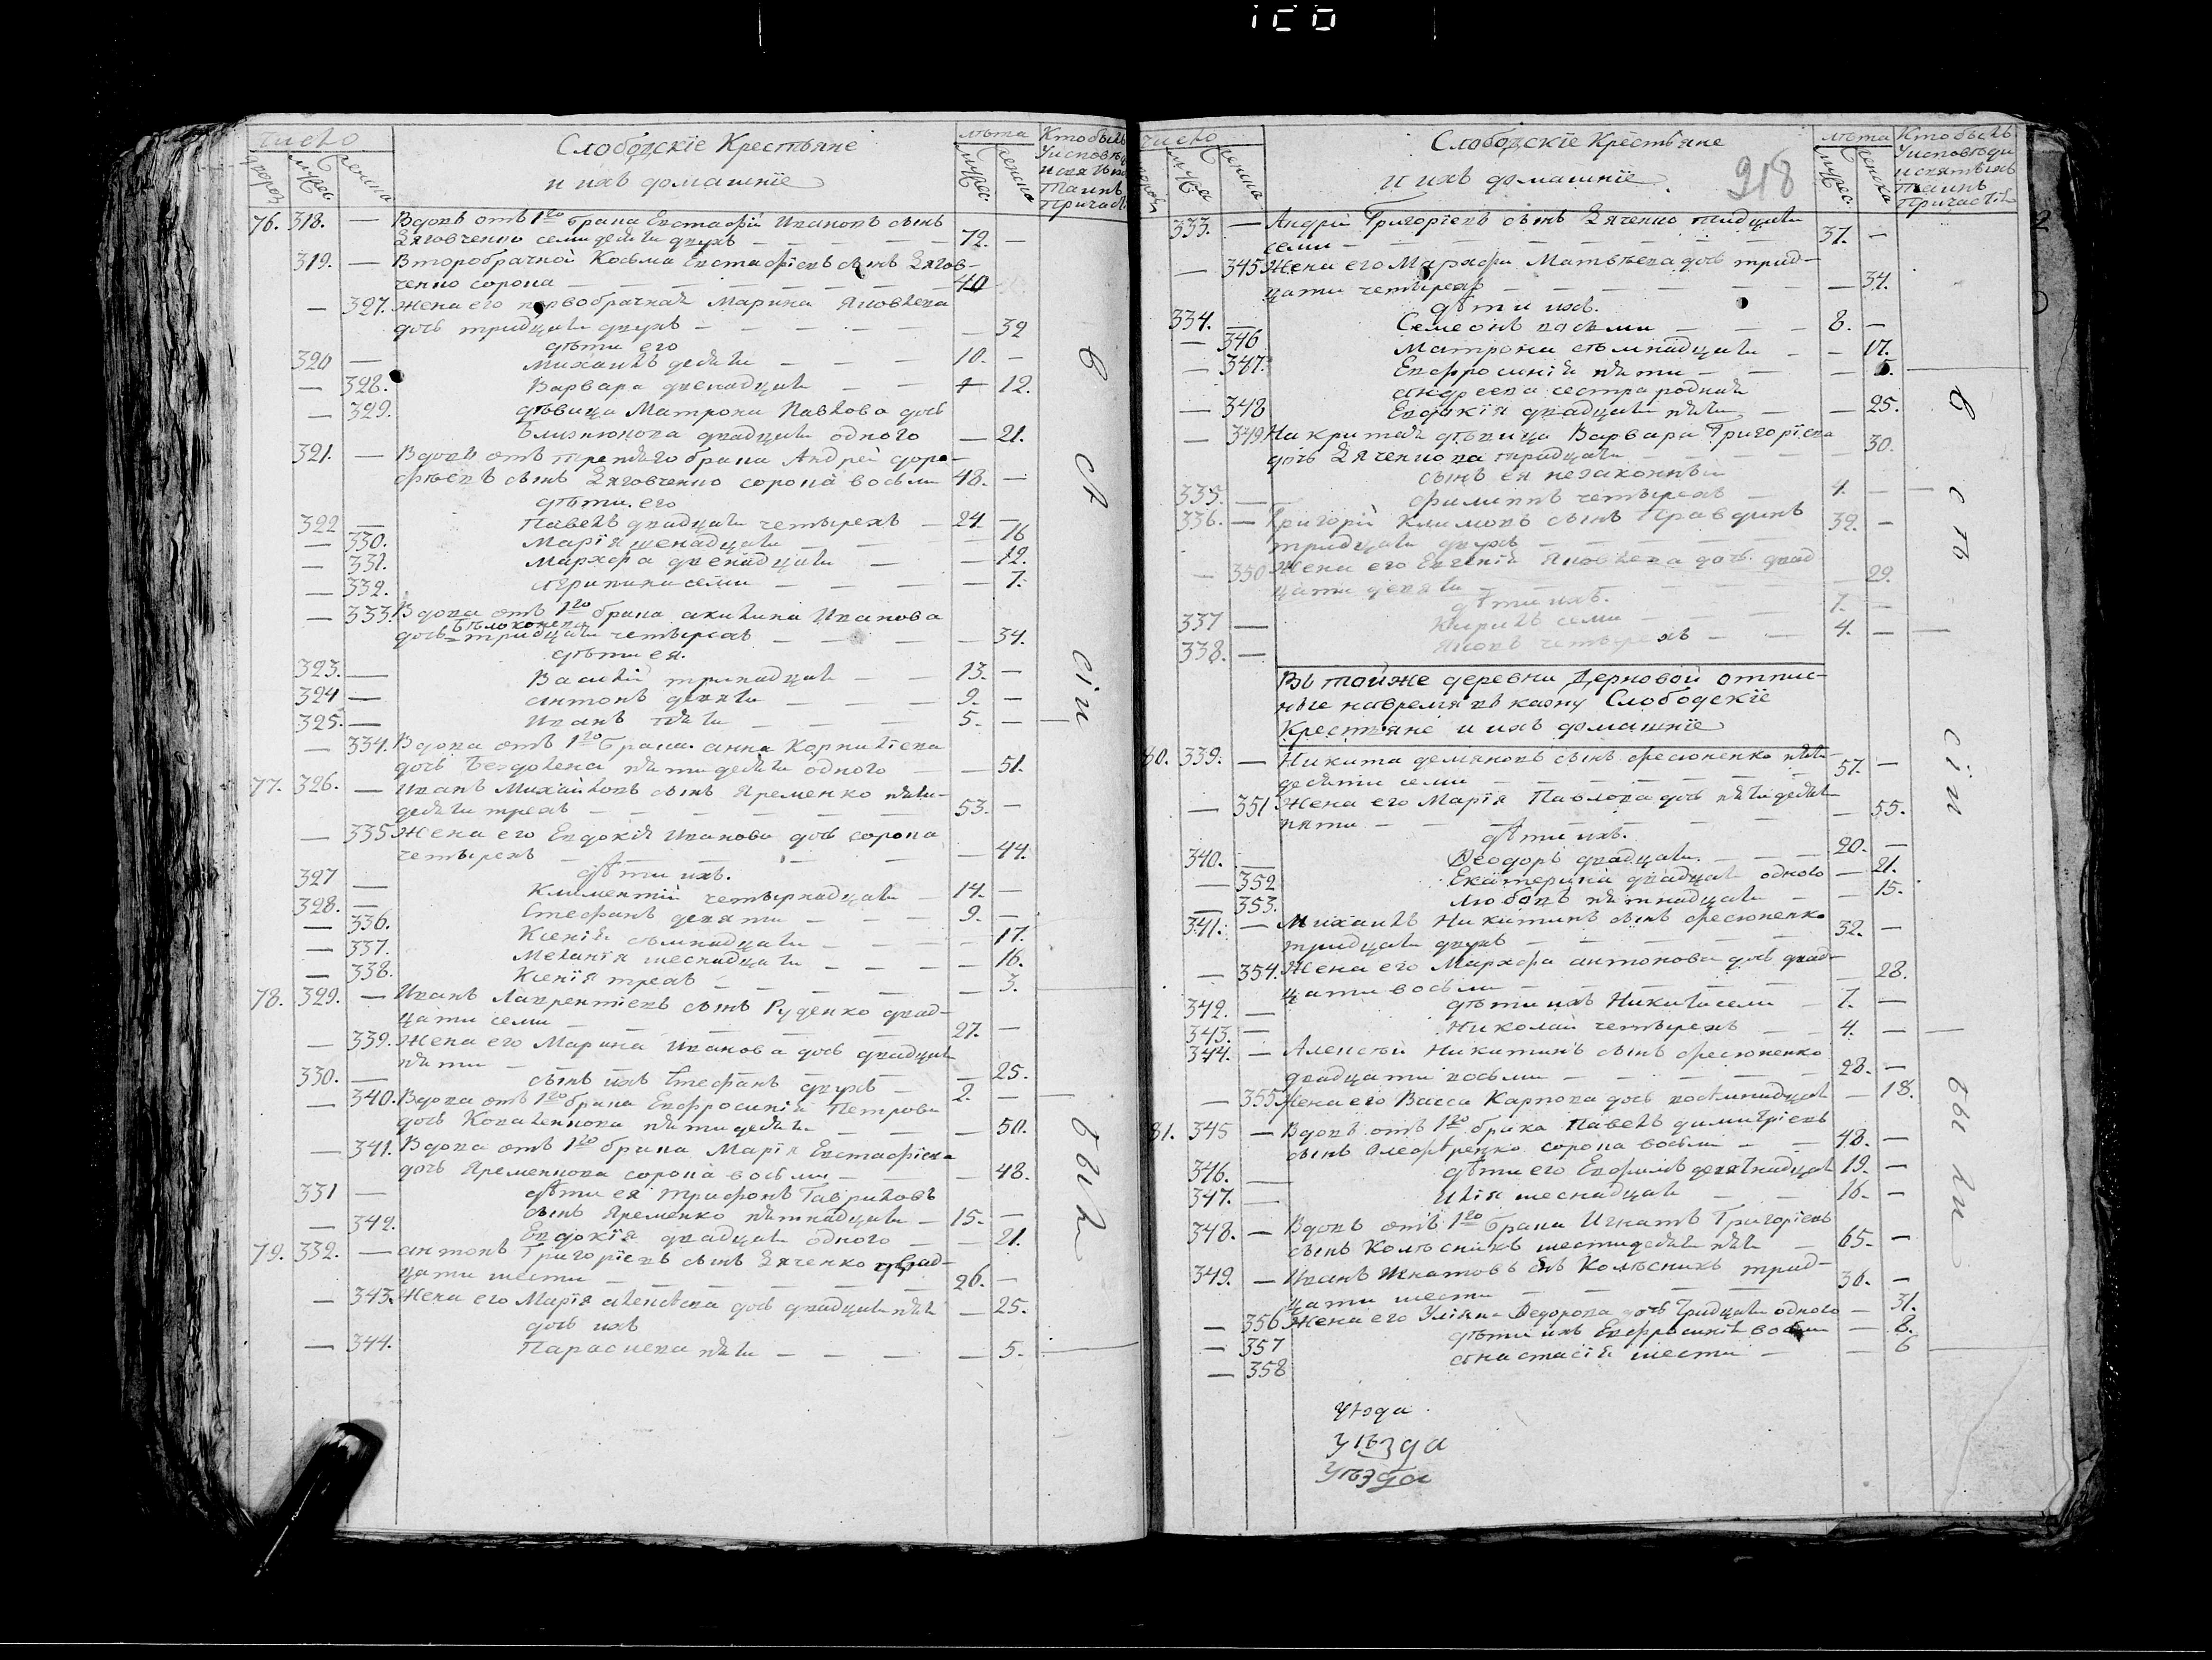 число
дворов
мужес.
женска
Слободскіе Крестьяне
и ихъ домашніе
лѣта
мужес.
женска
Кто былъ
у исповѣди
и святыхъ
Таинъ
Причаст.
76. 318. — Вдовъ отъ 1го брака Евстафій Ивановъ сынъ
Зяговченко семидесяти двухъ — 72. —
319. — Второбрачной Косьма Евстафіевъ сынъ Зягов-
ченко сорока — 40
— 327. Жена его первобрачная Марина Яковлева
дочь тридцати двухъ — 32
дѣти его
320 — Михаилъ десяти — 10. —
— 328. Варвара двенадцати — 12.
— 329. дѣвица Матрона Павлова дочь
Близнюкова двадцати одного — 21.
321. — Вдовъ отъ третяго брака Андрей доро-
фѣевъ сынъ Зяговченко сорока восьми 48. —
дѣти его
322 — Павелъ двадцати четырехъ — 24. —
— 330. Марія шенадцати — 16
— 331. Марфа двенадцати — 12.
— 332. агрипина семи — 7.
— 333. Вдова отъ 1го брака акилина Иванова
дочь Бѣлоконева тридцати четырехъ — 34.
дѣти ея.
323. — Василій тринадцати — 13. —
324 — антонъ девяти — 9. —
325. — Иванъ пяти — 5. —
— 334. Вдова отъ 1го брака анна Корнилїева
дочь Бездолена пятидесяти одного — 51.
77. 326. — Иванъ Михайловъ сынъ Яременко пяти-
десяти трехъ — 53. —
— 335 Жена его Евдокія Иванова дочь сорока
четырехъ — 44.
дѣти ихъ.
327 — Климентій четырнадцати — 14. —
328. — Стефанъ девяти — 9. —
— 336. Ксенія семнадцати — 17.
— 337. Меланія шеснадцати — 16.
— 338. Ксенія трехъ — 3.
78. 329. — Иванъ Лаврентіевъ сынъ Руденко двад-
цати семи — 27. —
— 339. Жена его Марина Иванова дочь двадцати
пяти — 25.
330. — сынъ ихъ Стефанъ двухъ — 2. —
— 340. Вдова отъ 1го брака Евфросинія Петрова
дочь Коваленкова пятидесяти — 50.
— 341. Вдова отъ 1го брака Марія Евстафіева
дочь Яременкова сорока восьми — 48.
331 — дѣти ея Трифонъ Гавриловъ
сынъ Яременко пятнадцати — 15. —
— 342. Евдокія двадцати одного — 21.
79. 332. — антонъ Григоріевъ сынъ Зяченко двад-
цати шести — 26. —
— 343. Жена его Марія алексѣева дочь двадцати пяти — 25.
дочь ихъ
— 344. Параскева пяти — 5.
Всѣ
сіи
были
число
дворов
мужеска
женска
Слободскіе Крестьяне
и ихъ домашніе
218
лѣта
мужес.
женска
Кто былъ
у исповѣди
и святыхъ
Таинъ
Причастія
333. — Андрій Григоріевъ сынъ Зяченко тридцати
семи — 37. —
— 345 Жена его Марфа Матвѣева дочь трид-
цати четырехъ — 34.
дѣти ихъ.
334. — Семеонъ восьми — 8. —
— 346 Матрона семнадцати — 17.
— 347. Евфросинія пяти — 5.
андреева сестра родная
— 348 Евдокія двадцати пяти — 25.
— 349 Накритая дѣвица Варвара Григоріева
дочь Зяченкова тридцати 30.
сынъ ея незаконный
335. — филиппъ четырехъ — 4. —
336. — Григорій Климовъ сынъ Правдинъ
тридцати двухъ — 32. —
— 350 Жена его Евгенія Яковлева дочь двад-
цати девяти — 29.
дѣти ихъ.
337 — Кирилъ семи — 7. —
338. — Яковъ четырехъ — 4. —
Въ тойже деревни Дерновой отпис-
ные навремя въ казну Слободскіе
Крестьяне и ихъ домашніе
80. 339. — Никита демяновъ сынъ фесюненко пяти-
десяти семи — 57. —
— 351 Жена его Марія Павлова дочь пятидесяти
пяти — 55.
дѣти ихъ.
340. — Ѳеодоръ двадцати. — 20. —
— 352 Екатерина двадцати одного — 21.
— 353. Любовъ пятнадцати — 15.
341. — Михаилъ Никитинъ сынъ фесюненко
тридцати двухъ — 32. —
— 354. Жена его Марфа антонова дочь двад-
цати восьми — 28.
342. — дѣти ихъ Никита семи — 7. —
343. — Николай четырехъ — 4. —
344. — Алексѣй Никитинъ сынъ фесюненко
двадцати восьми — 28. —
— 355 Жена его Васса Карпова дочь восемнадцати — 18.
81. 345 — Вдовъ отъ 1го брака Павелъ димитріевъ
сынъ Олефѣренко сорока восьми — 48. —
346. — дѣти его Евфимъ девятнадцати 19. —
347. — Илія шеснадцати — 16. —
348. — Вдовъ отъ 1го брака Игнатъ Григоріевъ
сынъ Колѣсникъ шестидесяти пяти — 65. —
349. — Иванъ Игнатовъ снъ Колѣсникъ трид-
цати шести — 36. —
— 356 Жена его Уліяна Ѳедорова дочь тридцати одного — 31.
— 357 дѣти ихъ Евфросинія восьми — 8.
— 358 анастасія шести — 6
Всѣ
сіи
были
уѣзда
Уѣзда
Уѣзда